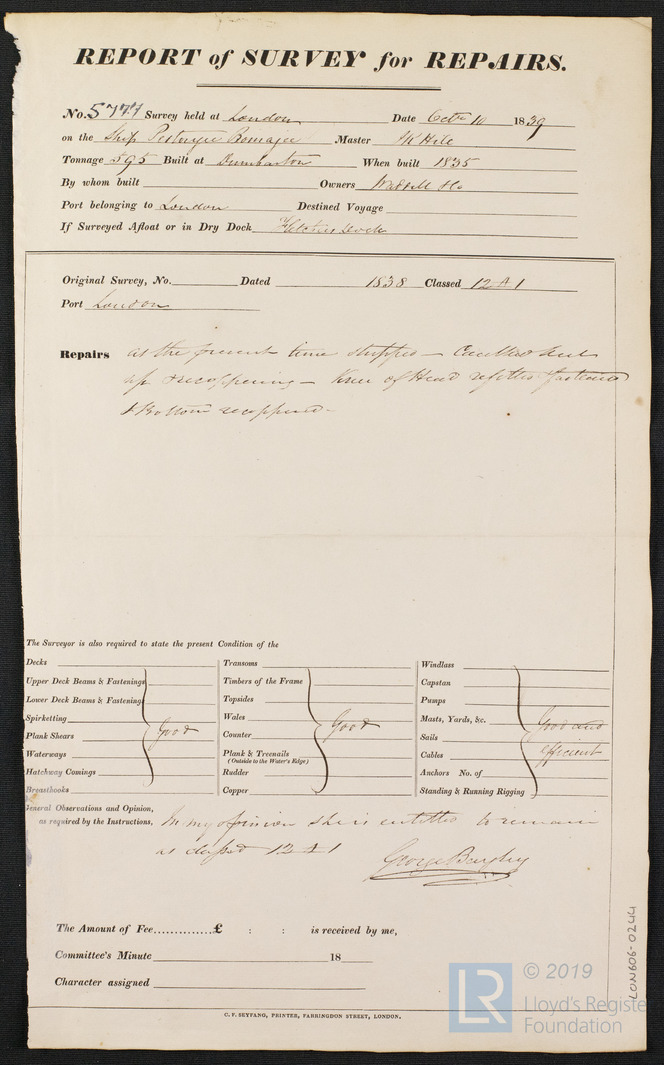 REPORT of SURVEY for REPAIRS.
No. 5777 Survey held at London Date Octr 10 1839
on the Ship Pestonjee Bomanjee Master Hill
Tonnage 595 Built at Dumbarton When built 1835
By whom built Owners Waddell &Co
Port belonging to London Destined Voyage
If Surveyed Afloat or in Dry Dock Fletchers Dock
Original Survey, No. Dated 1838 Classed 12 A 1
Port London
Repairs at the present time stripped – Caulked
up & recoppering – Knee of Head refitted & fastened
& Bottom recoppered –
The Surveyor is also required to state the present Condition of the
Decks
Upper Deck Beams & Fastenings
Lower Deck Beams & Fastening
Spirketting
Plank Shears
Waterways
Hatchway Comings
Breasthooks
Good
Transoms
Timbers of the Frame
Topsides
Wales
Counter
Plank & Treenails
(Outside to the Water's Edge)
Rudder
Copper
Good
Windlass
Capstan
Pumps
Masts, Yards, &c.
Sails
Cables
Anchors No. of
Standing & Running Rigging
Good and
efficient
General Observations and Opinion,
as required by the Instructions.
In my opinion she is entitled to remain
as classed 12 A 1
George Bayley
The Amount of Fee..............£ : : is received by me,
Committee's Minute 18
Character assigned
C. F. SEYFANG, PRINTER, FARRINGDON STREET, LONDON.
LON606-0244
LR © 2019
Lloyd's Registe
Foundation